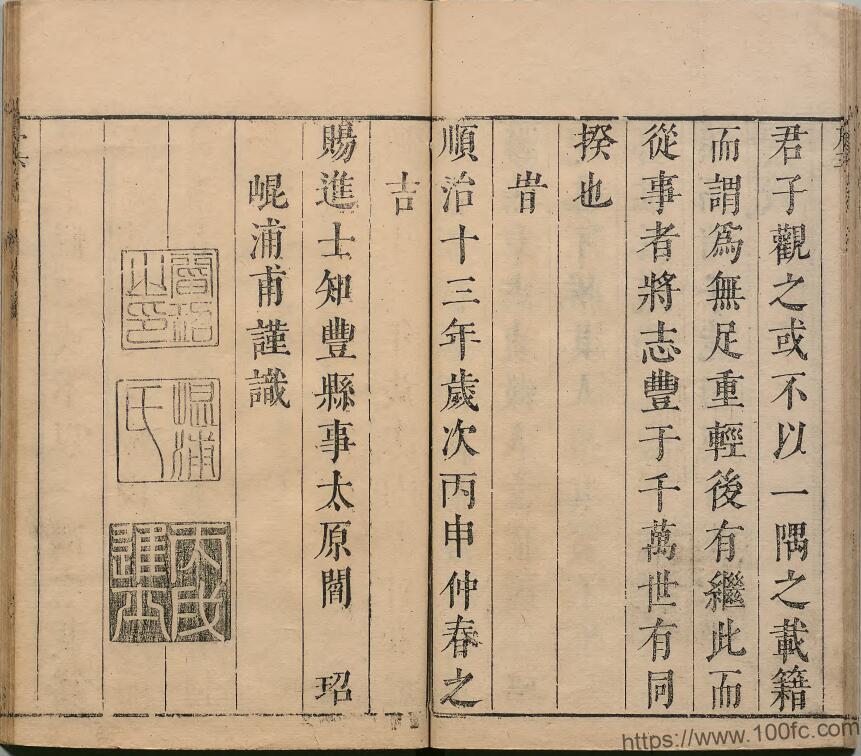 君子觀之或不以一隅之載籍
而謂爲無足重輕後有繼此而
從事者將志豐于千萬世有同
揆也
旹
順治十三年歲次丙申仲春之
吉
賜進士知豐縣事太原閻 玿
崐浦甫謹識
崐浦
氏
丙戌
進士
https://www.100fc.com